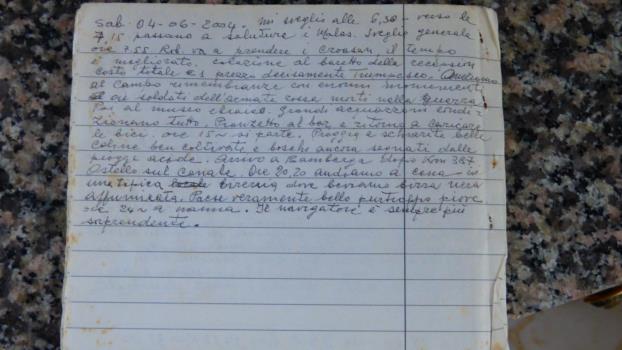 Sab. 04-06-2004. mi sveglio alle 6,30 - verso le
7,15 passano a salutare i Malas. Sveglio generale
ore 7.55 Rob. va a prendere i Croasan il tempo
è migliorato. colazione al baretto della
costo totale prezzo decisamente
al campo rimembranze con enormi monumenti
ai soldati dell'armata rossa morti nella guerra
Poi al museo ebraico. grandi acquazzoni
tutto. Pranzetto al bar e ritorno a caricare
le bici. ore 15 si parte. Pioggia e schiarite belle
colline ben coltivate e boschi ancora segnati dalle
piogge acide. Arrivo a Bamberga dopo Km 387
Ostello sul Canale. Ore 20,20 andiamo a cena in
una tipica birreria dove beviamo birra nera
affumicata. Paese veramente bello purtroppo piove
ore 24 a nanna. Il navigatore è sempre più
sorprendente.